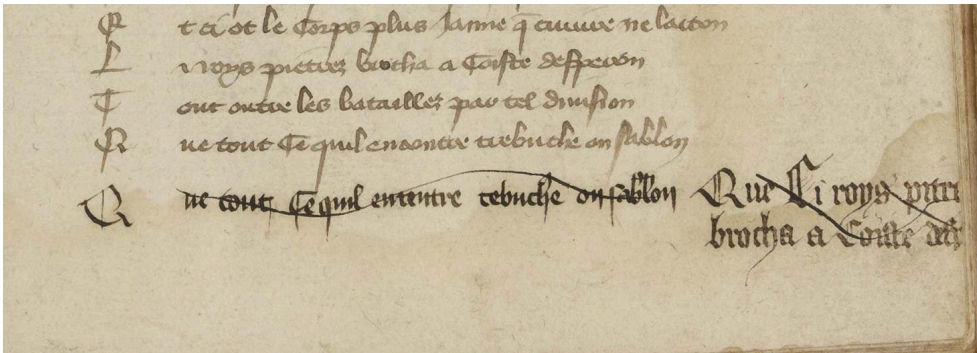 Et ci ot le Corps plus Janne q̄ cuivre ne laiton
Li roys pietrez brocha a Coiste desperon
Tout outre les bataillez par tel division
Que tout Ce quil encontre trebuche on sablon
Que tout Ce quil ententre tebuche on sablon Que Li roys pietre
brocha a Coiste des